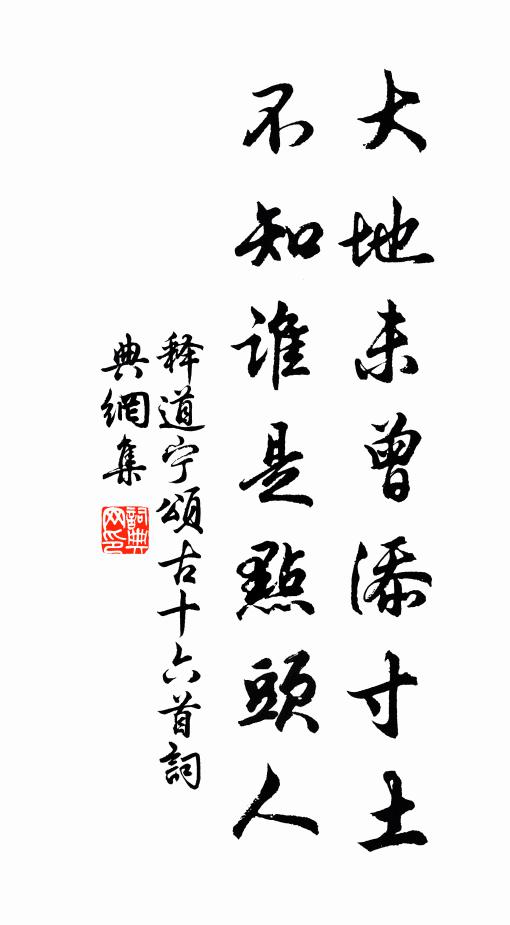 大地未曾添寸土
不知誰是點頭人
释道宁頌古十六首詞
典網集
詞典網印